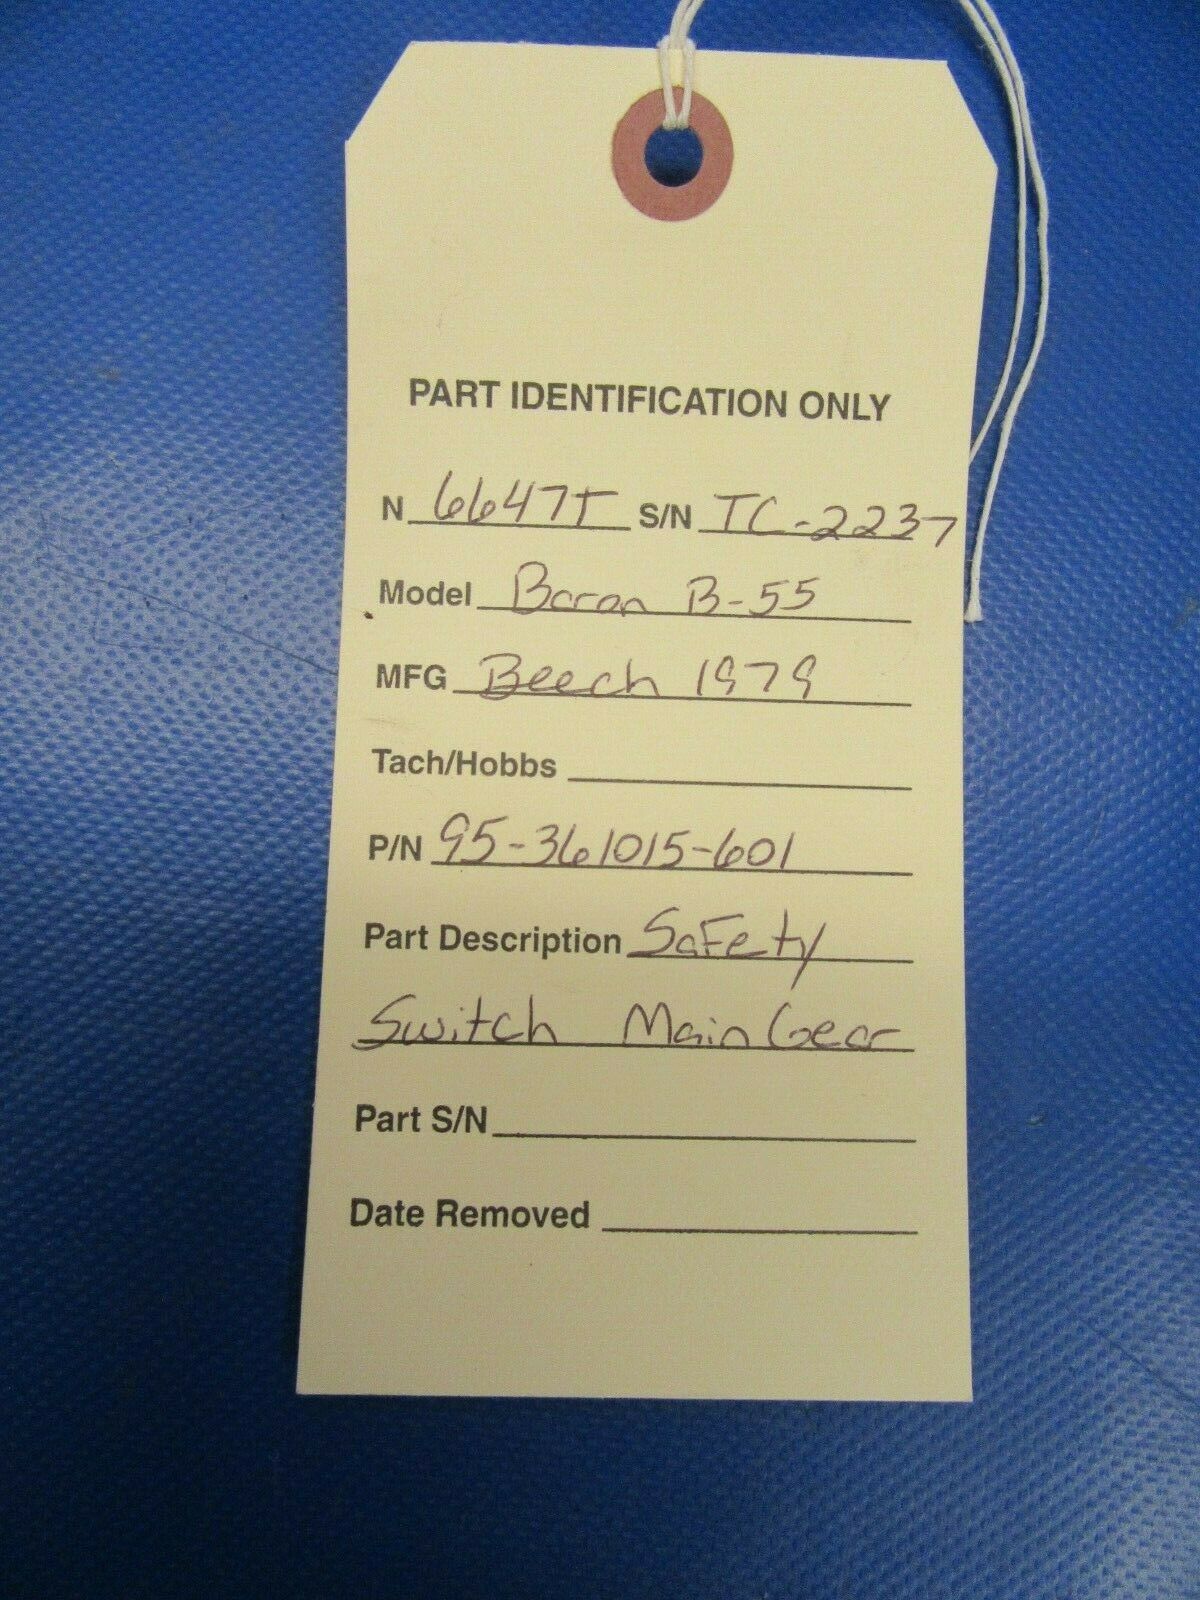 PART IDENTIFICATION ONLY
N 6647T S/N TC-2237
Model Baron B-55
MFG Beech 1979
Tach/Hobbs
P/N 95-361015-601
Part Description Safety
Switch Main Gear
Part S/N
Date Removed